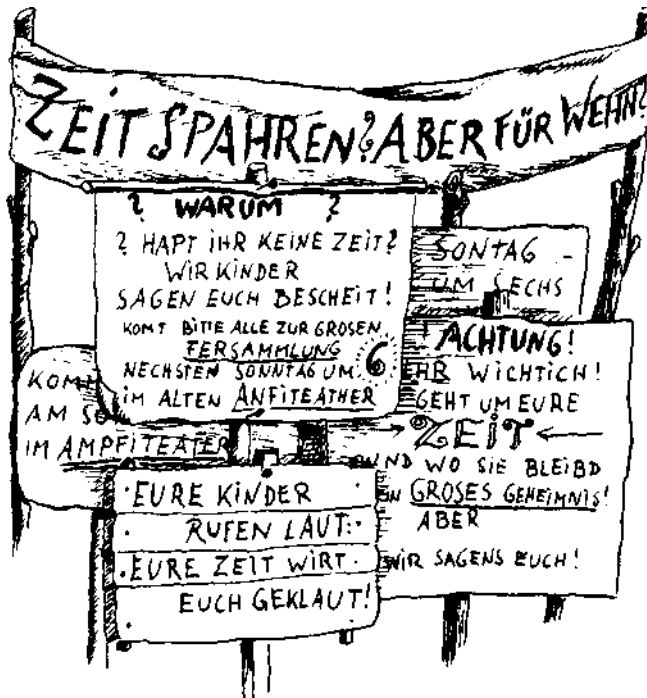 ZEIT SPAHREN? ABER FÜR WEHN?
? WARUM ?
? HAPT IHR KEINE ZEIT?
WIR KINDER
SAGEN EUCH BESCHEIT!
KOMT BITTE ALLE ZUR GROSEN
FERSAMMLUNG
NECHSTEN SONNTAG UM 6
IM ALTEN ANFITEATHER
SONTAG
UM SECHS
ACHTUNG!
EHR WICHTICH!
GEHT UM EURE
ZEIT
UND WO SIE BLEIBD
GROSES GEHEIMNIS!
ABER
WIR SAGENS EUCH!
KOMM
AM
IM AMPFITEATER
EURE KINDER
RUFEN LAUT:
EURE ZEIT WIRT
EUCH GEKLAUT!